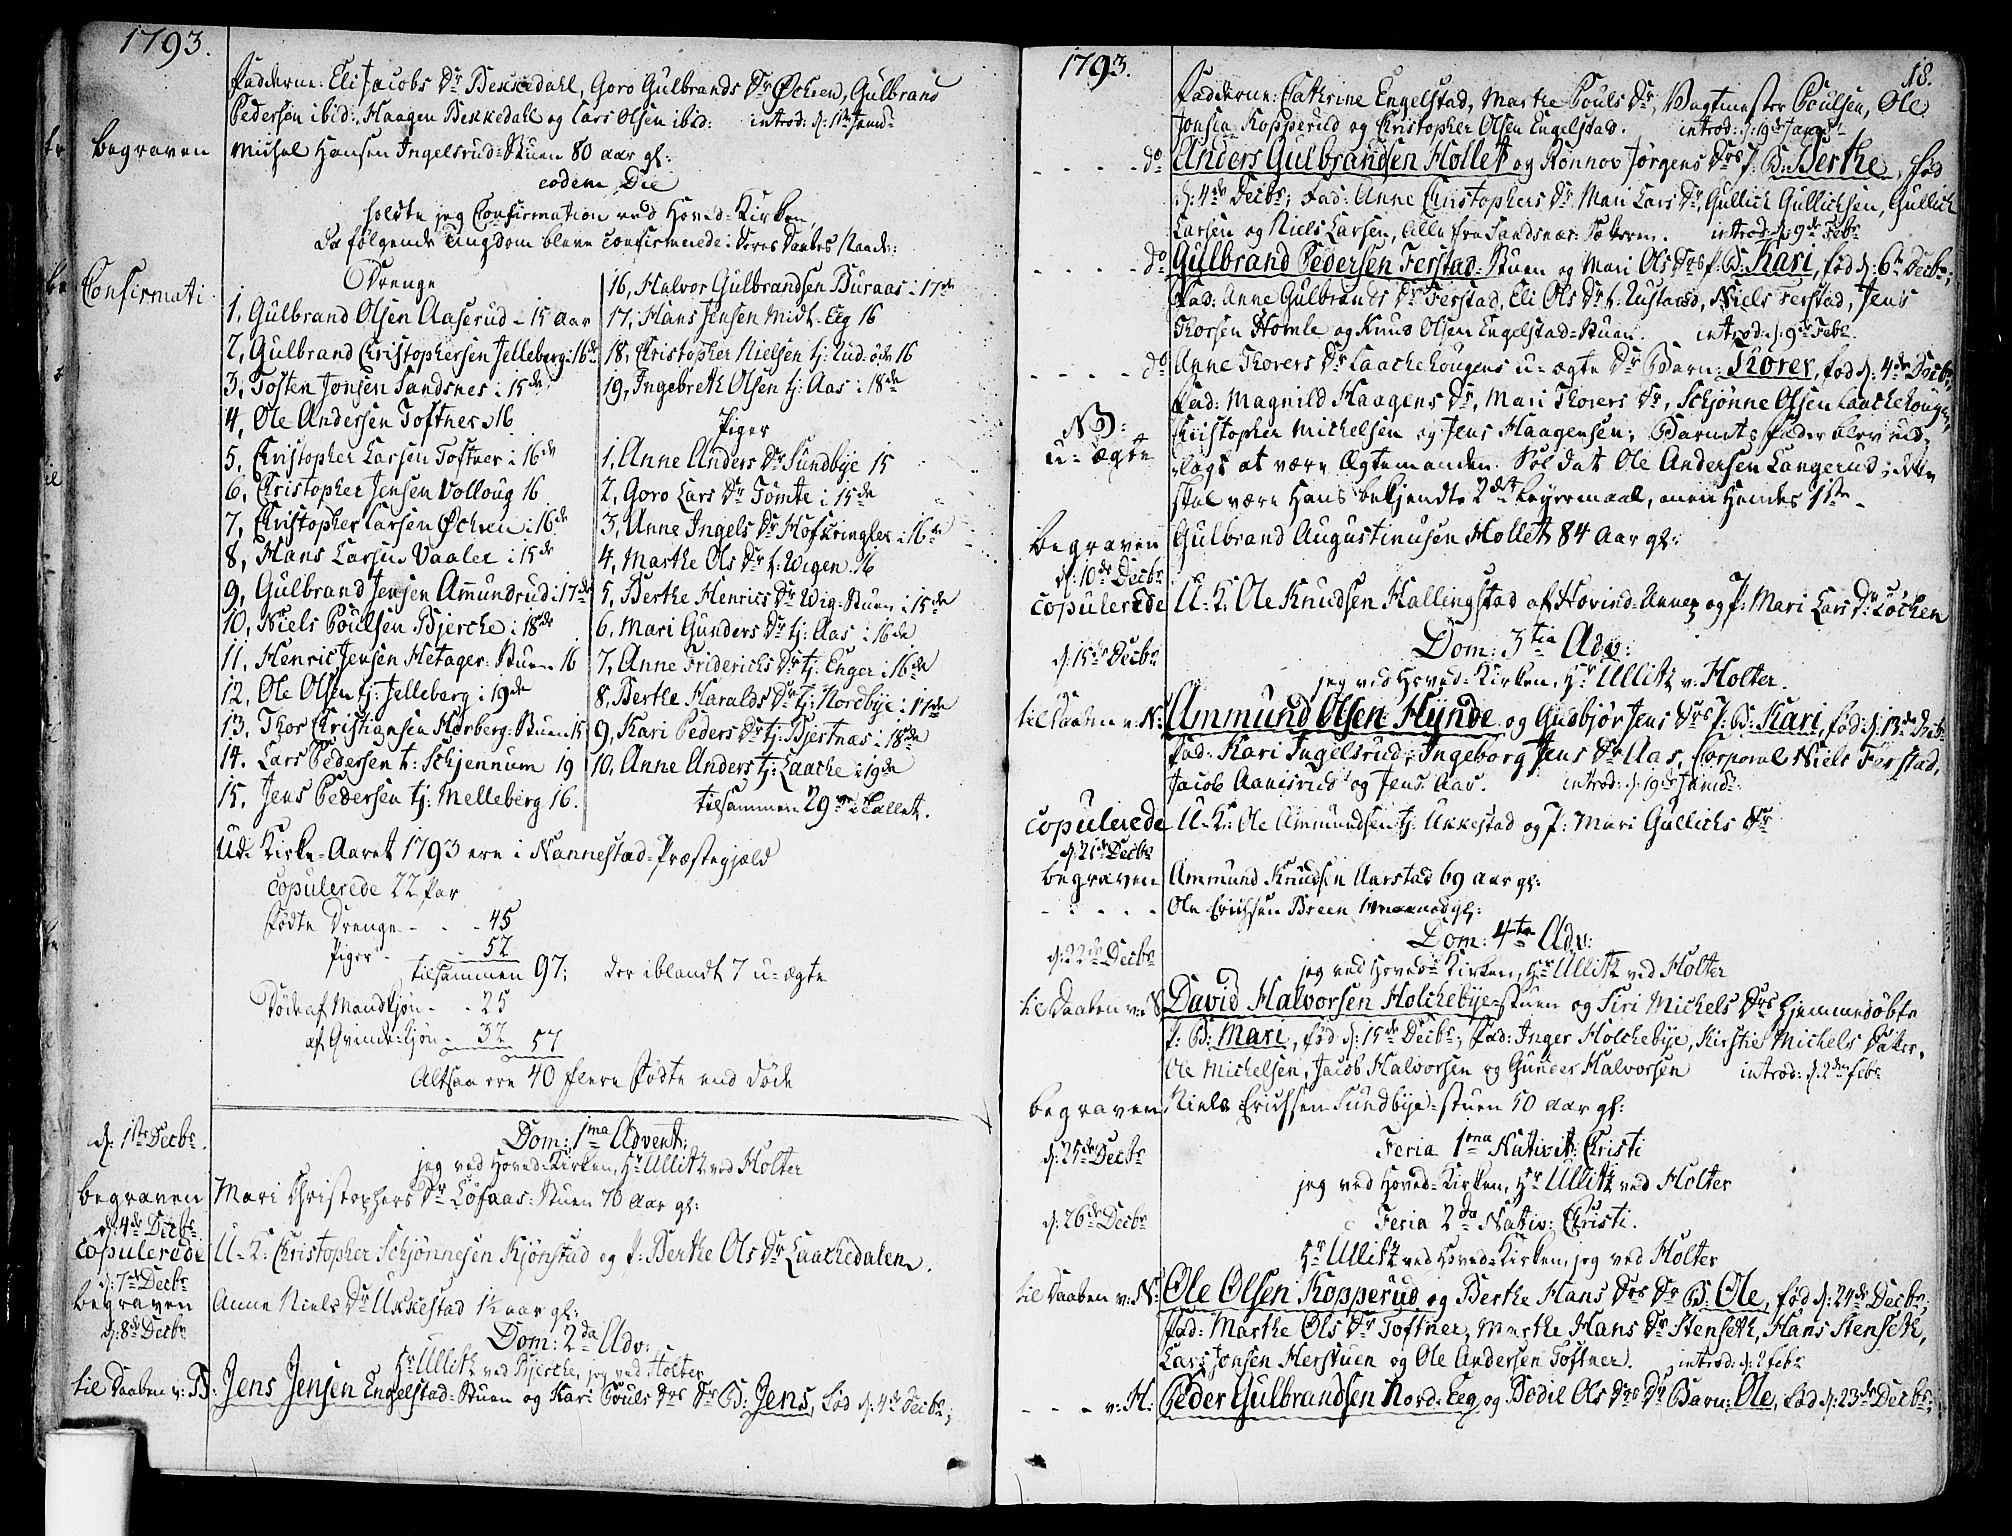 1793.
Fadderne: Eli Jacobs Dr Bekkedahl, Goro Gulbrands Dr Ochren, Gulbrand
Pedersen ibid:, Haagen Bekkedahl og Lars Olsen ibid: introd: d:
begraven Michel Hansen Ingelsrud-Stuen 80 aar gl:
eodem Die
holdte jeg Confirmation ved Hoved-Kirken
Da følgende Ungdom bleve confirmerede i Deres Daabes Naade:
Confirmati
Drenge
1, Gulbrand Olsen Aaserud - 15 aar
2, Gulbrand Christophersen Jelleberg: 16de
3, Tosten Jonsen Sandsnes: 15de
4, Ole Andersen Toftner 16
5, Christopher Larsen Toftner: 16de
6, Christopher Jensen Volloug 16
7, Christopher Larsen Ochren: 16de
8, Hans Larsen Vaaler: 15de
9, Gulbrand Jensen Amundrud: 17de
10, Niels Poulsen Bjerche: 18de
11, Henric Jensen Hetager-Stuen 16
12, Ole Olsen tj: Jelleberg: 19de
13, Thor Christiansen Horberg-Stuen 15
14, Lars Pedersen t: Schjennum 19
15, Jens Pedersen tj: Melleberg 16.
16, Halvor Gulbrandsen Buraas: 17de
17, Hans Jensen Midt-Eeg 16
18, Christopher Nielsen tj: Rud-øde 16
19, Ingebreth Olsen tj: Aas: 18de
Piger
1, Anne Anders Dr Sundbye 15
2, Goro Lars Dr Tømte: 15de
3, Anne Ingels Dr Hofkringler: 16de
4, Marthe Ols Dr t: Wigen 16
5, Berthe Henrics Dr Wig-Stuen: 15de
6, Mari Gunders Dr tj: Aas: 16de
7, Anne Friderichs Dr tj: Enger: 16de
8, Berthe Haralds Dr tj: Nordbye: 17de
9, Kari Peders Dr tj: Bjertnæs: 18de
10, Anne Anders tj: Laache: 19de
tilsammen 29 i Tallet.
Ud. Kirke-Aaret 1793 ere i Nannestad-Præstegjæld
Copulerede 22 Par
Fødte Drenge - - - 45
Piger - - - 52
tilsammen 97; der iblandt 7 u-ægte
Døde af Mandkjøn - - 25
af Qvinde-kjøn - 32 57
Altsaa ere 40 flere Fødte end døde
d: 1ste Decbr. Dom: 1ma Advent:
jeg ved Hoved-Kirken, Hr Ullitz ved Holter
begraven Mari Christophers Dr Løfaas-Stuen 70 Aar gl:
d: 4de Decbr
Copulerede U-K: Christopher Schjønnesen Kjønstad og P: Berthe Ols Dr Laachedalen.
d: 7de Decbr
begraven Anne Niels Dr Ukkestad 1½ aar gl:
d: 8de Decbr Dom: 2da Adv:
Hr Ullitz ved Bjerche, jeg ved Holter
til Daaben v: B: Jens Jensen Engelstad-Stuen og Kari Pouls Drs Dr B: Jens, fød d: 4de Decbr;
1793. 18.
Fadderne: Cathrine Engelstad, Marthe Pouls Dr, Vagtmester Poulsen, Ole
Jonsen Kopperud og Christopher Olsen Engelstad. introd: d: 19de Janr
- - - - do Anders Gulbrandsen Hollet og Ronnov Jørgens Drs f: B: Berthe, fød
d: 4de Decbr; Fad: Anne Christophers Dr, Mari Lars Dr, Gullich Gullichsen, Gullich
Larsen og Niels Larsen, alle fra Sandsnær. introd: d: 9de Febr
- - - - do Gulbrand Pedersen Ferstad-Stuen og Mari Ols Drs f: B: Kari, fød d: 6te Decbr;
Fad: Anne Gulbrands Dr Ferstad, Eli Ols Dr t: Rustaad, Niels Ferstad, Jens
Thorsen Homle og Knud Olsen Engelstad-Stuen. introd: d: 9de Febr.
- - - - do Anne Thorers Dr Laachehougens u-ægte Dr Barn: Thorer, fød d: 4de Decbr,
Fad: Magnild Haagens Dr, Mari Thorers Dr, Schjønne Olsen Laachehougen,
NB: Christopher Michelsen og Jens Haagensen; Barnets Fader blev ud-
u-ægte lagt at være Ægtemanden Soldat Ole Andersen Langerud; dette
skal være Hans bekjendte 2det Leyermaal, men Hendes 1ste -
begraven Gulbrand Augustinusen Hollet 84 Aar gl:
d: 10de Decbr
Copulerede U-K: Ole Knudsen Hallingstad af Hovind-Annex og P: Mari Lars Dr Løchen
d: 15de Decbr Dom: 3tia Adv:
jeg ved Hoved-Kirken, Hr Ullitz v: Holter.
til Daaben v: N: Ammund Olsen Hynde og Gudbjør Jens Drs f: B: Kari, fød d: 13de Decbr
Fad: Kari Ingelsrud, Ingeborg Jens Dr Aas, Corporal Niels Ferstad,
Jacob Aamesrud og Jens Aas. introd: d: 19de Janr:
Copulerede U-K: Ole Ammundsen tj: Ukkestad og P: Mari Gullichs Dr
d: 21de Decbr
begraven Ammund Knudsen Aarstad 69 aar gl:
- - - - Ole Erichsen Breen 1 maaned gl:
d: 22de Decbr Dom: 4ta Adv:
jeg ved Hoved-Kirken, Hr Ullitz ved Holter
til Daaben v: N David Halvorsen Holchebye-Stuen og Siri Michels Drs hjemmedøbte
f: B: Mari, fød d: 15de Decbr; Fad: Inger Holchebye, Kirstie Michels Dr,
Ole Michelsen, Jacob Halvorsen og Gunder Halvorsen introd: d: 2den Febr
begraven Niels Erichsen Sundbye-stuen 50 aar gl:
d: 25de Decbr Feria 1ma Nativit: Christi
jeg ved Hoved-Kirken, Hr Ullitz ved Holter
d: 26de Decbr Feria 2da Nativ: Christi.
Hr Ullitz ved Hoved-Kirken, jeg ved Holter
til Daaben v: N: Ole Olsen Kopperud og Berthe Hans Drs Dr B: Ole, fød d: 24de Decbr;
Fad: Marthe Ols Dr Toftner, Marthe Hans Dr Stenseth, Hans Stenseth,
Lars Jonsen Herstuen og Ole Andersen Toftner. introd: d: 2 Febr
- - - v: H: Peder Gulbrandsen Nord-Eeg og Bodil Ols Drs Dr Barn: Ole, fød d: 23de Decbr;